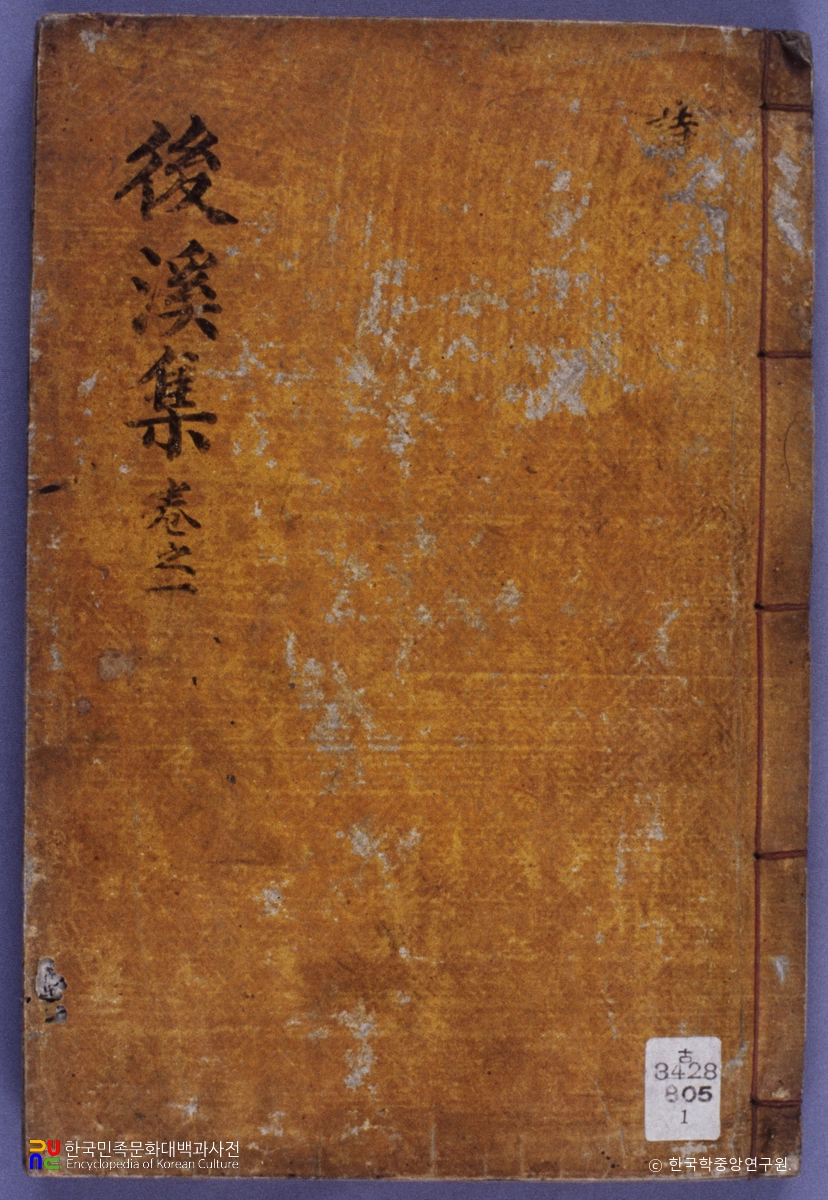 詩
後溪集 卷之一
古
3428
805
1
한국민족문화대백과사전
Encyclopedia of Korean Culture
© 한국학중앙연구원